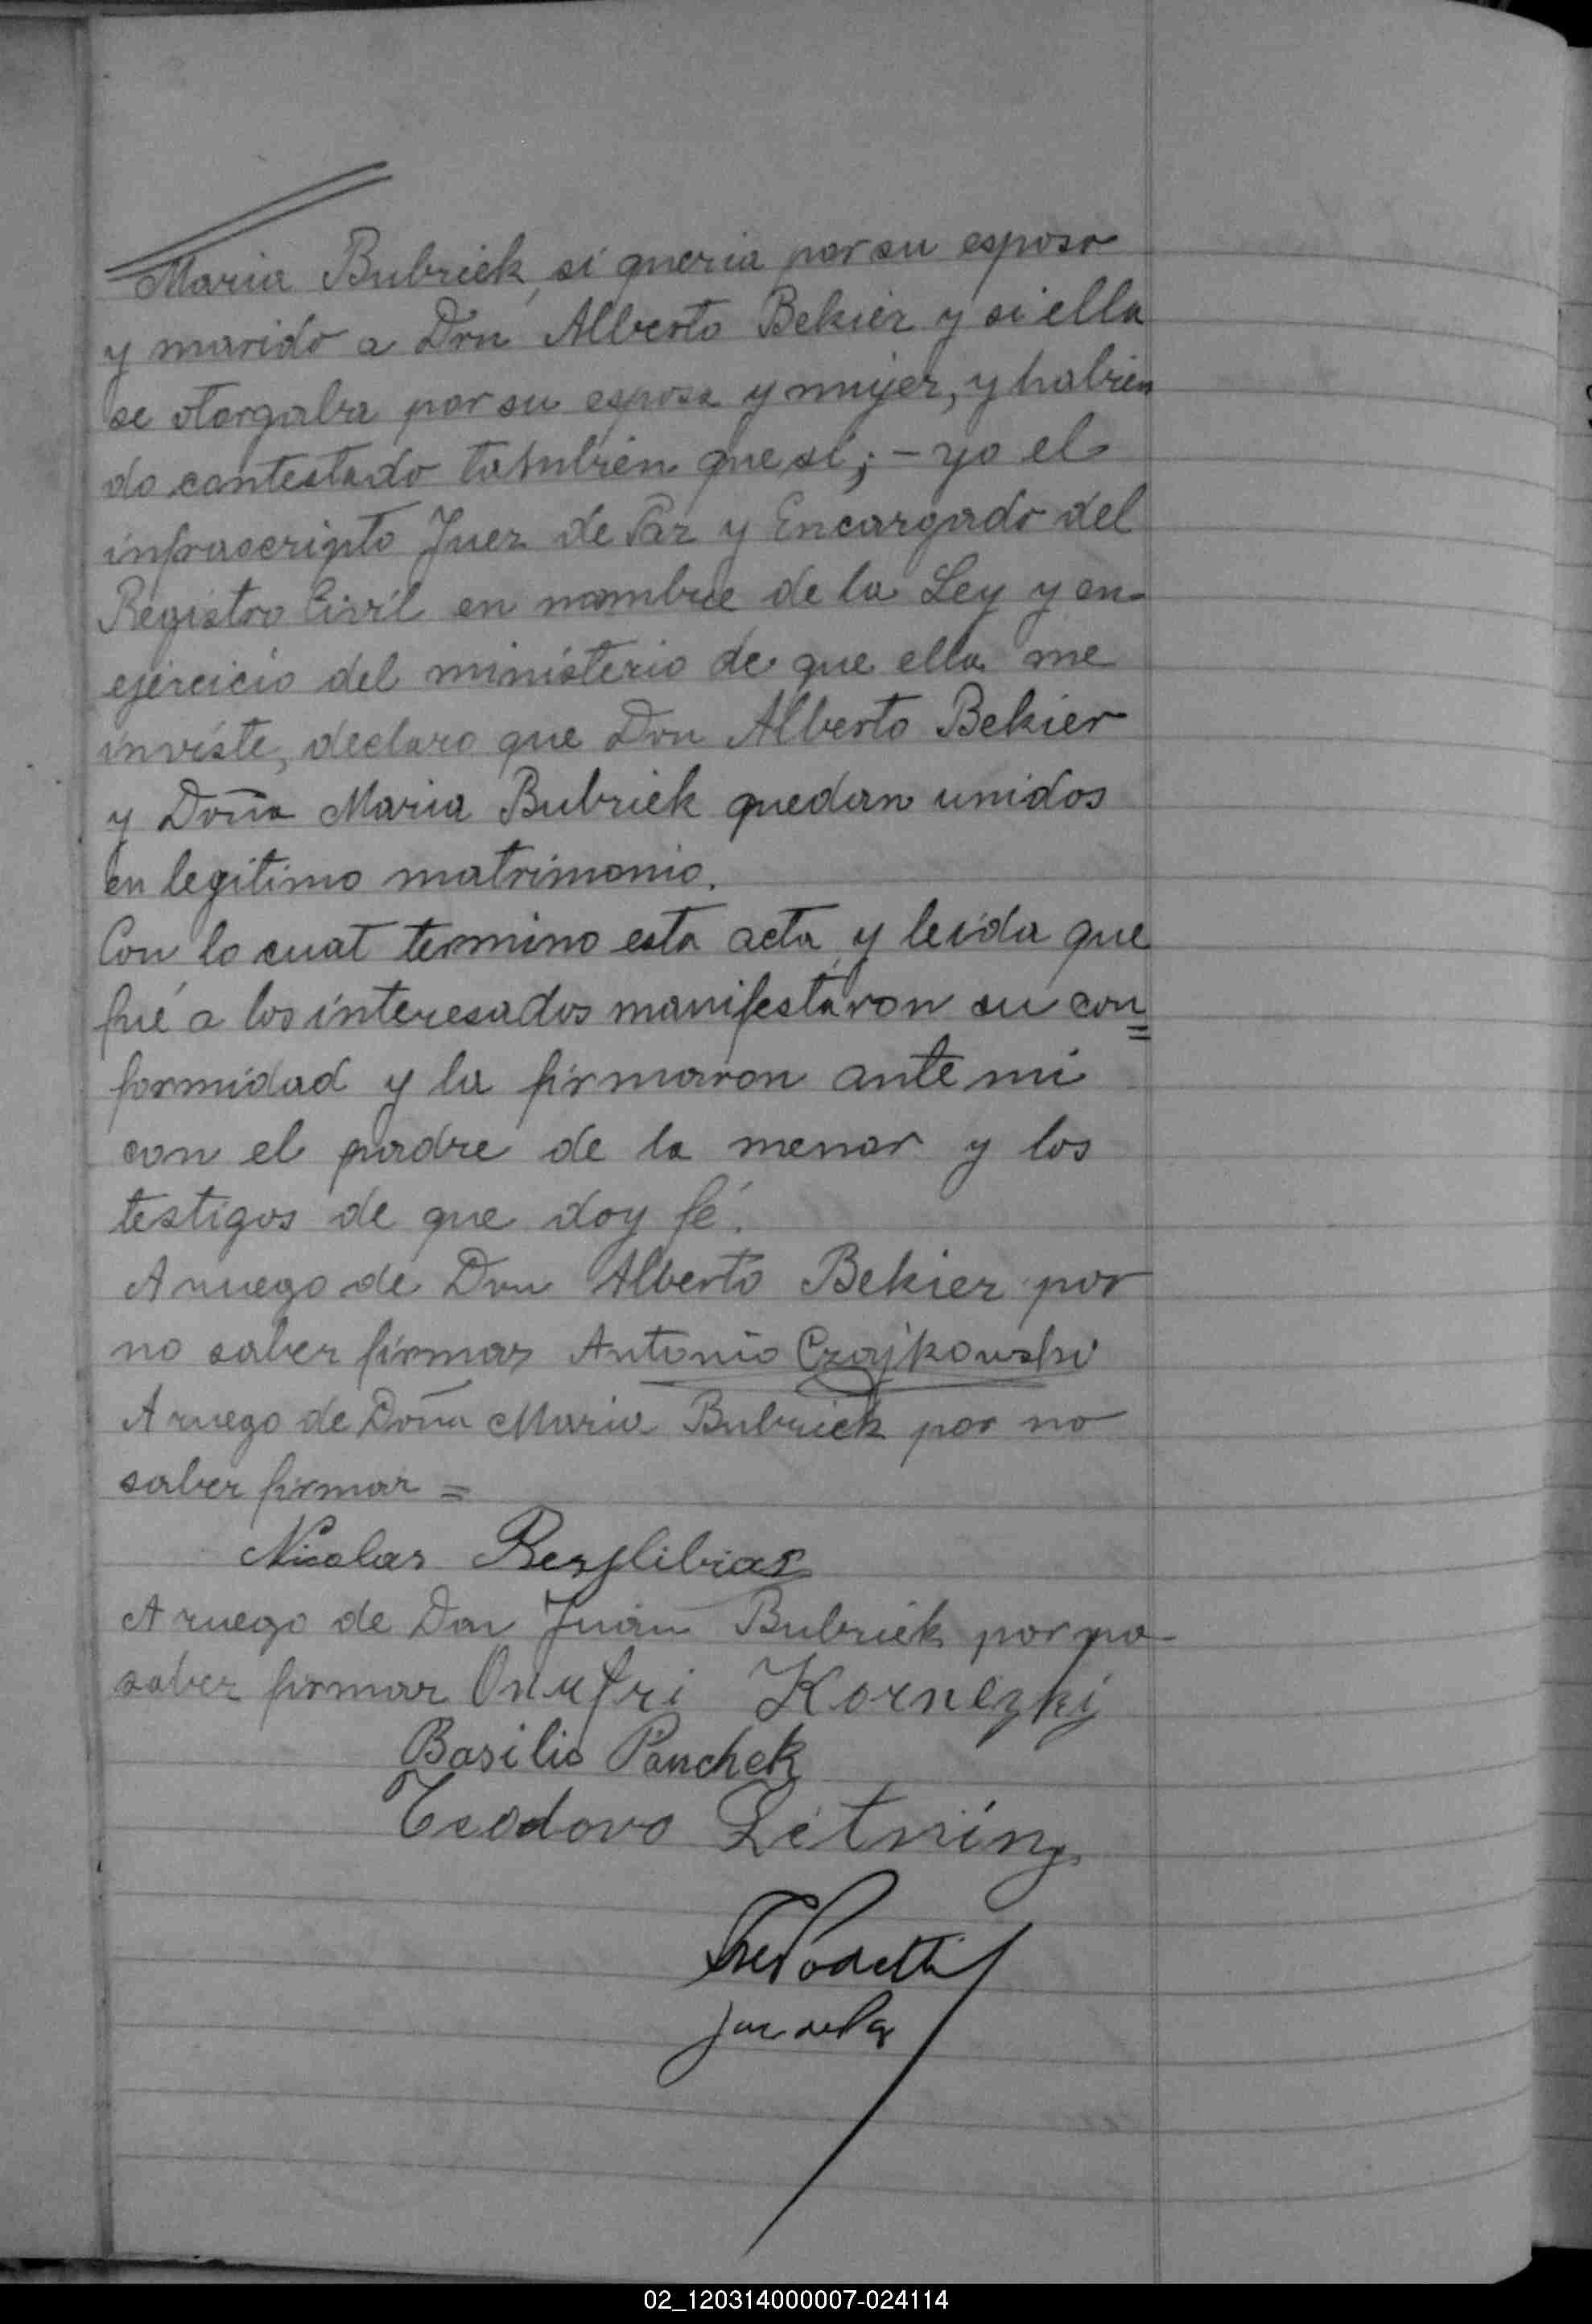 Maria Bubriek, si queria por su esposo
y marido a Don Alberto Bekier y si ella
se otorgaba por su esposa y mujer, y habien
do contestado también que si; - yo el
infrascripto Juez de Paz y Encargado del
Registro Civil en nombre de la Ley y en
ejercicio del ministerio de que ella me
inviste, declaro que Don Alberto Bekier
y Doña Maria Bubriek quedan unidos
en legitimo matrimonio.
Con lo cual termino esta acta, y leida que
fué a los interesados manifestaron su con=
formidad y la firmaron ante mi
con el padre de la menor y los
testigos de que doy fé.
A ruego de Don Alberto Bekier por
no saber firmar Antonio Czajkowski
A ruego de Doña Maria Bubriek por no
saber firmar =
Nicolas
A ruego de Don Juan Bubriek por no
saber firmar Onufri Kornezkij
Basilio Panchek
Teodoro
Juez de Paz
02_120314000007-024114